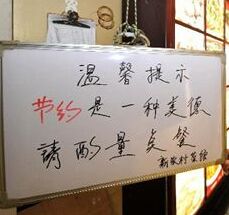 温馨提示
节约是一种美德
請酌量点餐
新农村餐馆